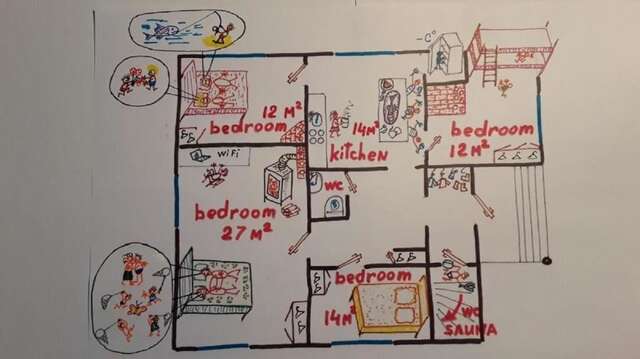 -C°
12 M²
bedroom
14 M²
kitchen
bedroom
12 M²
WiFi
WC
bedroom
27 M²
bedroom
14 M²
WC
SAUNA